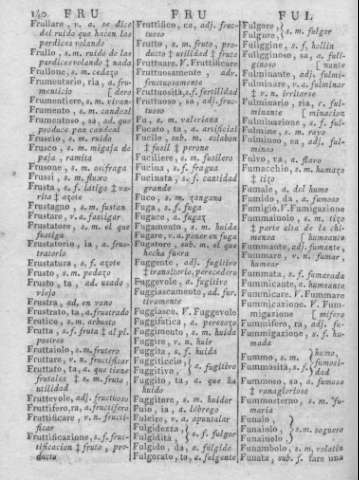 140 FRU FRU FUL
Frullare, v. a. se dice
del ruido que hacen las
perdices volando
Frullo, s. m. ruido de las
perdices volando ‡ nada
Frullone, s. m. cedazo
Frumentario, ria, a. fru-
menticio
Frumentiere, s. m. vivan-
Frumento, s. m. candeal
Frumentoso, sa, ad. que
produce pan candeal
Fruscio, s. m. ruido
Frusco, s. m. migaja de
paja, ramita
Frusone, s. m.
Frussi, s. m. fluxe
Frusta, s. f. latigo ‡ va-
rita ‡ azote
Frustagno, s. m. fustan
Frustare, v. a. fustigar
Frustatore, s. m. el que
fustiga
Frustatorio, ia, a. frus-
tratorio
Frustatura, s. f. azote
Frusto, s. m. pedazo
Frusto, ta, ad. usado,
viejo
Frustra, ad, en vano
Frustrato, ta, a. frustrado
Frutice, s. m. arbusto
Frutta, s. f. fruta ‡ al pl.
postres
Fruttaiolo, s. m. frutero
Fruttare, v. n. fructificar
Fruttato, ta, a. que tiene
frutales ‡ s. m. fruto,
utilidad
Fruttevole, adj. fructuoso
Fruttifero, ra, a. fructifero
Fruttificare, v. n. fructi-
ficar
Fruttificazione, s. f. fruc-
tificacion ‡ fruto, pro-
ducto
Fruttifico, ca, adj. fruc-
tuoso
Frutto, s. m. fruto, pro-
ducto ‡ utilidad
Fruttuare. V. Fruttificare
Fruttuosamente, adv.
fructuosamente
Fruttuosità, s. f. fertilidad
Fruttuoso, sa, adj. fruc-
tuoso
Fu, s. m. valeriana
Fucato, ta, a. artificial
Fucile, sub. m. eslabon
‡ fusil ‡ perone
Fuciliere, s. m. fusilero
Fucina, s. f. fragua
Fucinata, s. f. cantidad
grande
Fuco, s. m. zangano
Fuga, s. f. fuga
Fugace, a. fugaz
Fugamento, s. m. huida
Fugare, v. a. poner en fuga
Fugatore, sub. m. el que
hecha fuera
Fuggente, adj. fugitivo
‡ transitorio, perecedero
Fuggevole, a. fugitivo
Fuggiascamente, ad. fur-
tivamente
Fuggiasco. V. Fuggevole
Fuggifatica, a. perezozo
Fuggimento, s. m. huida
Fuggire, v. n. huir
Fuggita, s. f. huida
Fuggiticcio,
Fuggitivo, } a. fugitivo
Fuggito, ta, a. que ha
huido
Fuggitore, s. m. huidor
Fuio, ia, a. lóbrego
Fulcire, v. a. apuntalar
Fulgidezza,
Fulgidità, } s. f. fulgor
Fulgido, da, a. fulgido
Fulgorato, ta, a. fulgente
Fulgore,
Fulguro, } s. m. fulgor
Fuliggine, s. f. hollin
Fuliginoso, sa, a. fuli-
ginoso [nante
Fulminante, adj. fulmi-
Fulminare, v. a. fulminar
‡ v. n. irritarse
Fulminario, ria, r. ful-
minante [minacion
Fulminazione, s. f. ful-
Fulmine, s. m. rayo
Fulmineo, va, adj. fulmi-
neo
Fulvo, va, a. flavo
Fumacchio, s. m. humazo
‡ tizo
Fumale, a. del humo
Fumido, da, a. fumoso
Fumigio. V. Fumigazione
Fummaiuolo, s. m. tizo
‡ parte alta de la chi-
menea [humeante
Fummante, adj. fumante,
Fummare, v. n. fumar,
humear
Fummata, s. f. fumarada
Fummicante, a. humeante
Fummicare. V. Fummare
Fummicazione. V. Fum-
migazione [mifero
Fummifero, ra, adj. fu-
Fummigazione, s. f. hu-
mada
Fummo, s. m. { humo,
Fummosità, s. f. { fumosi-
dad
Fummoso, sa, a. fumoso
‡ vanaglorioso
Fummosterno, s. m. fu-
maria
Funaio,
Funaiolo, } s. m. soguero
Funaiuolo
Funambolo, s. m. volatin
Funata, sub. f. fare una